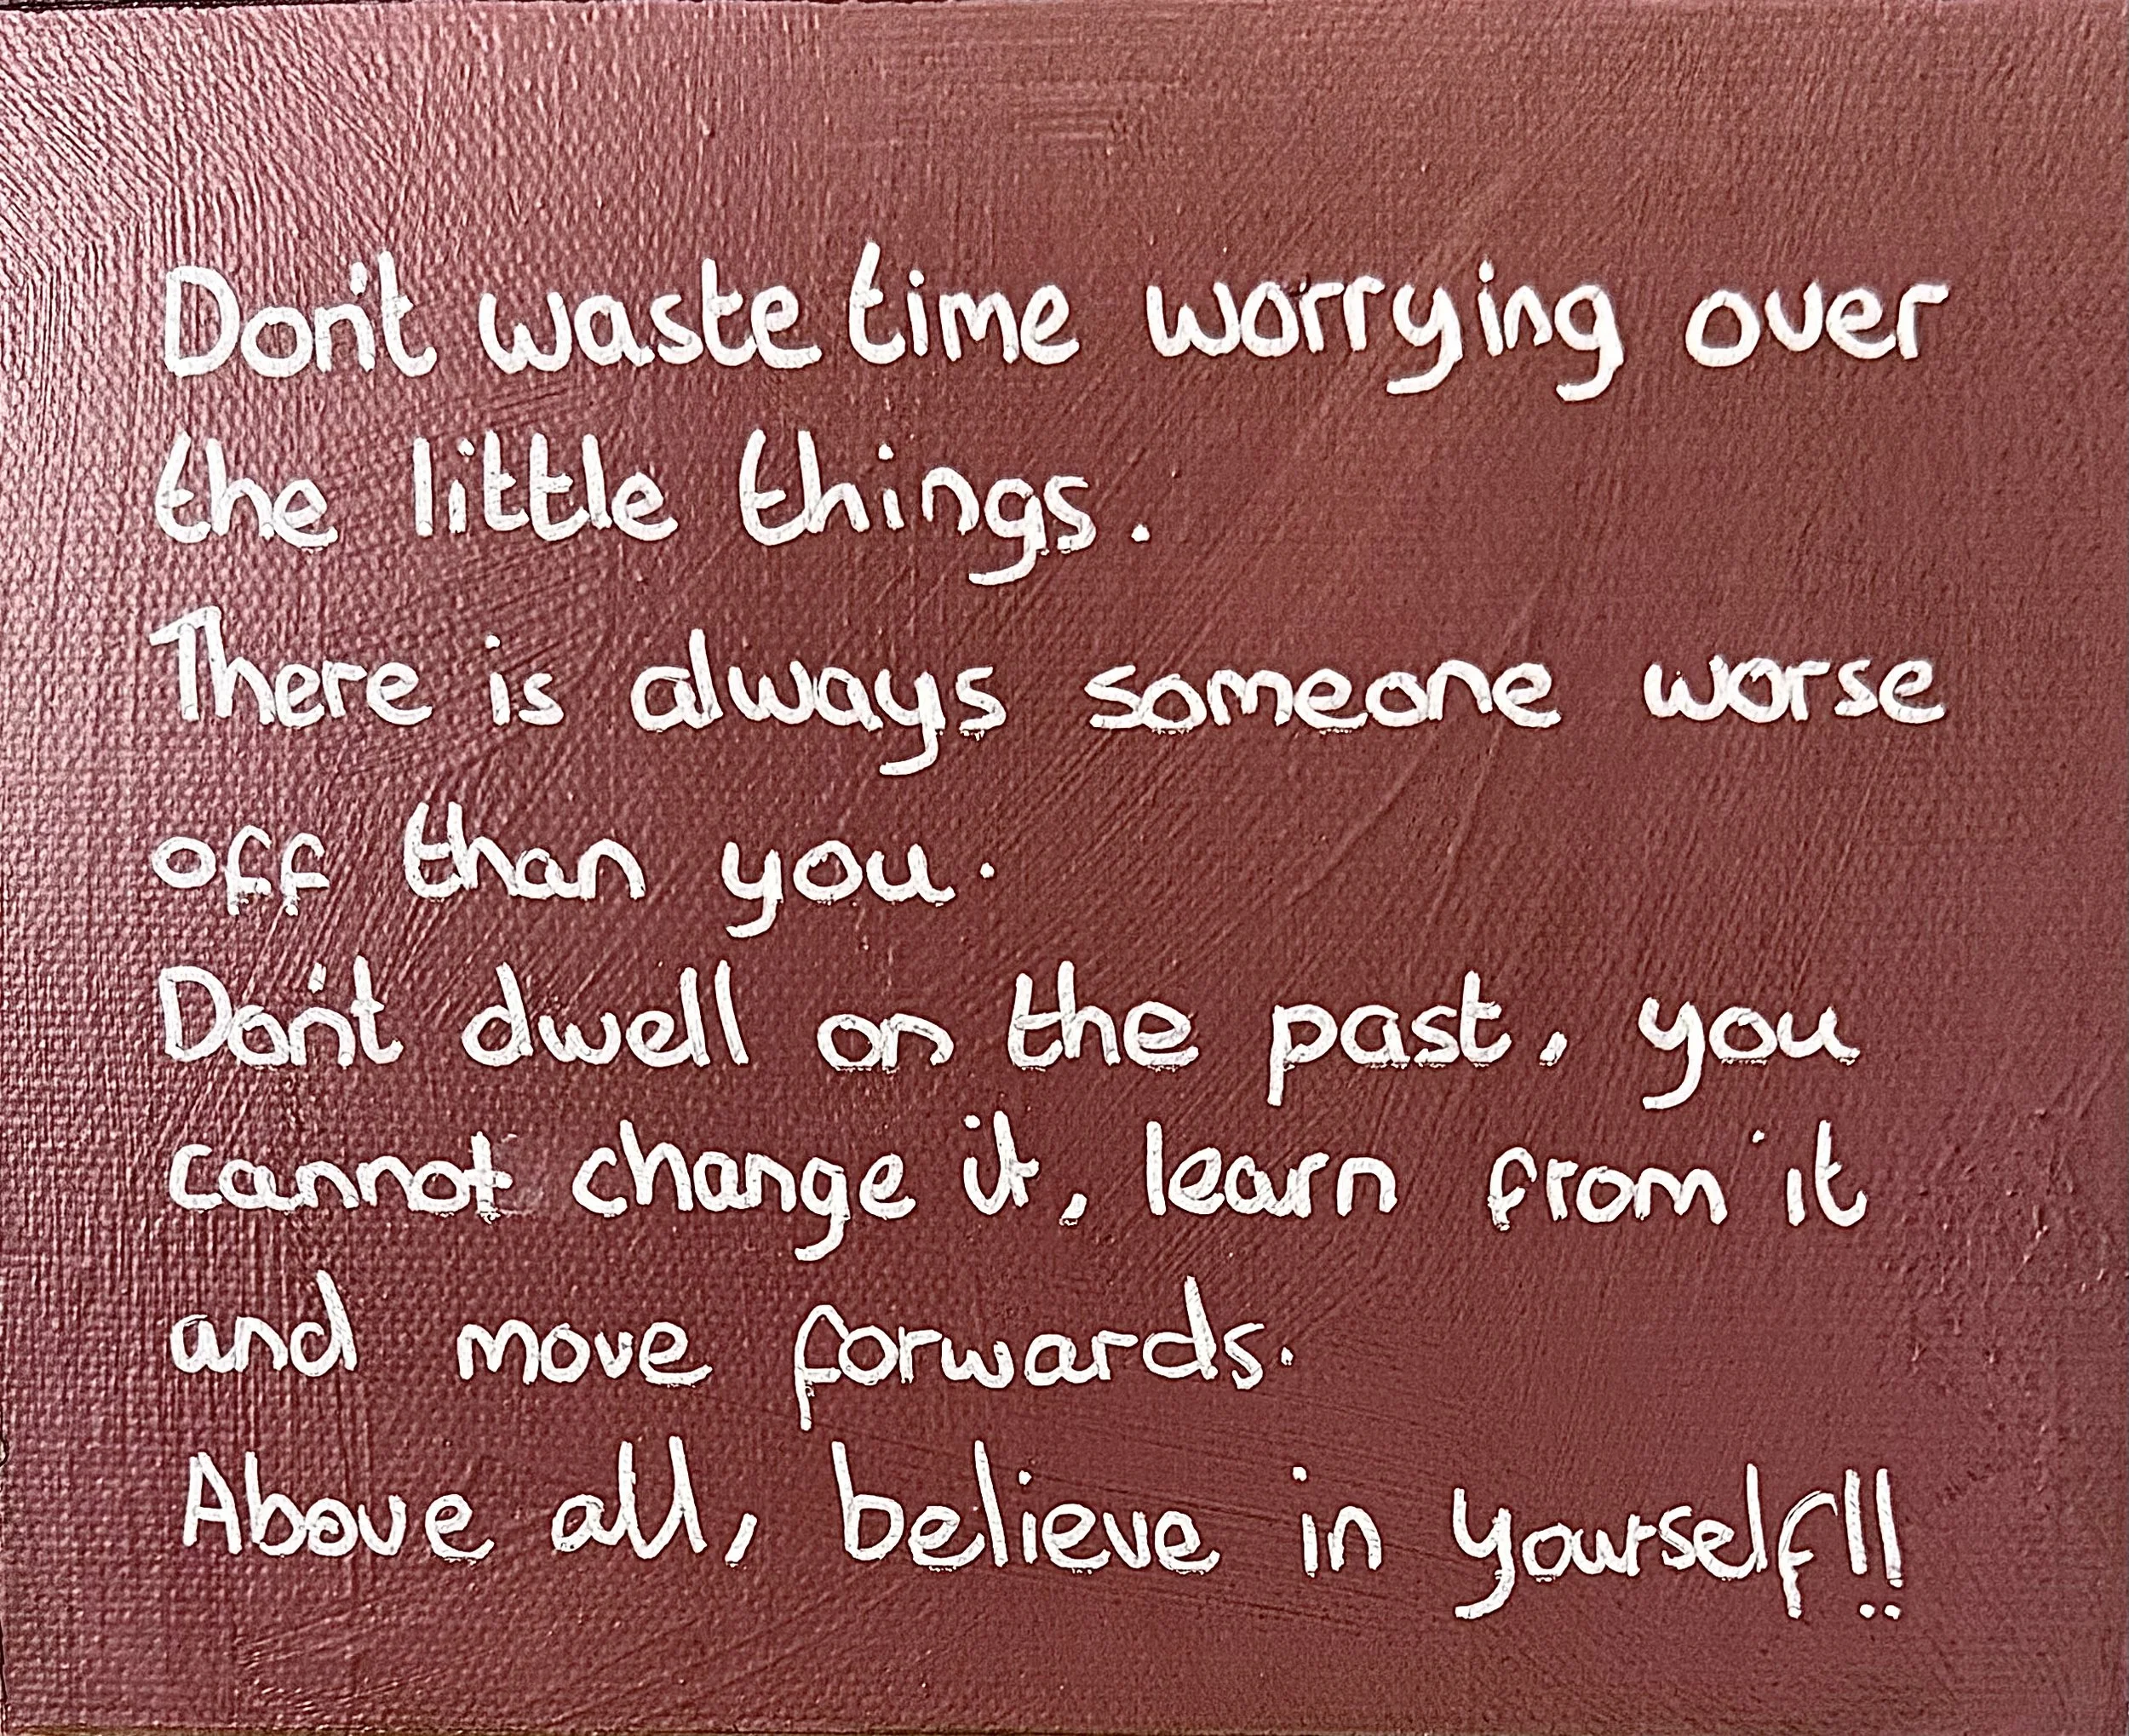 Don't waste time worrying over
the little things.
There is always someone worse
off than you.
Don't dwell on the past, you
cannot change it, learn from it
and move forwards.
Above all, believe in yourself!!